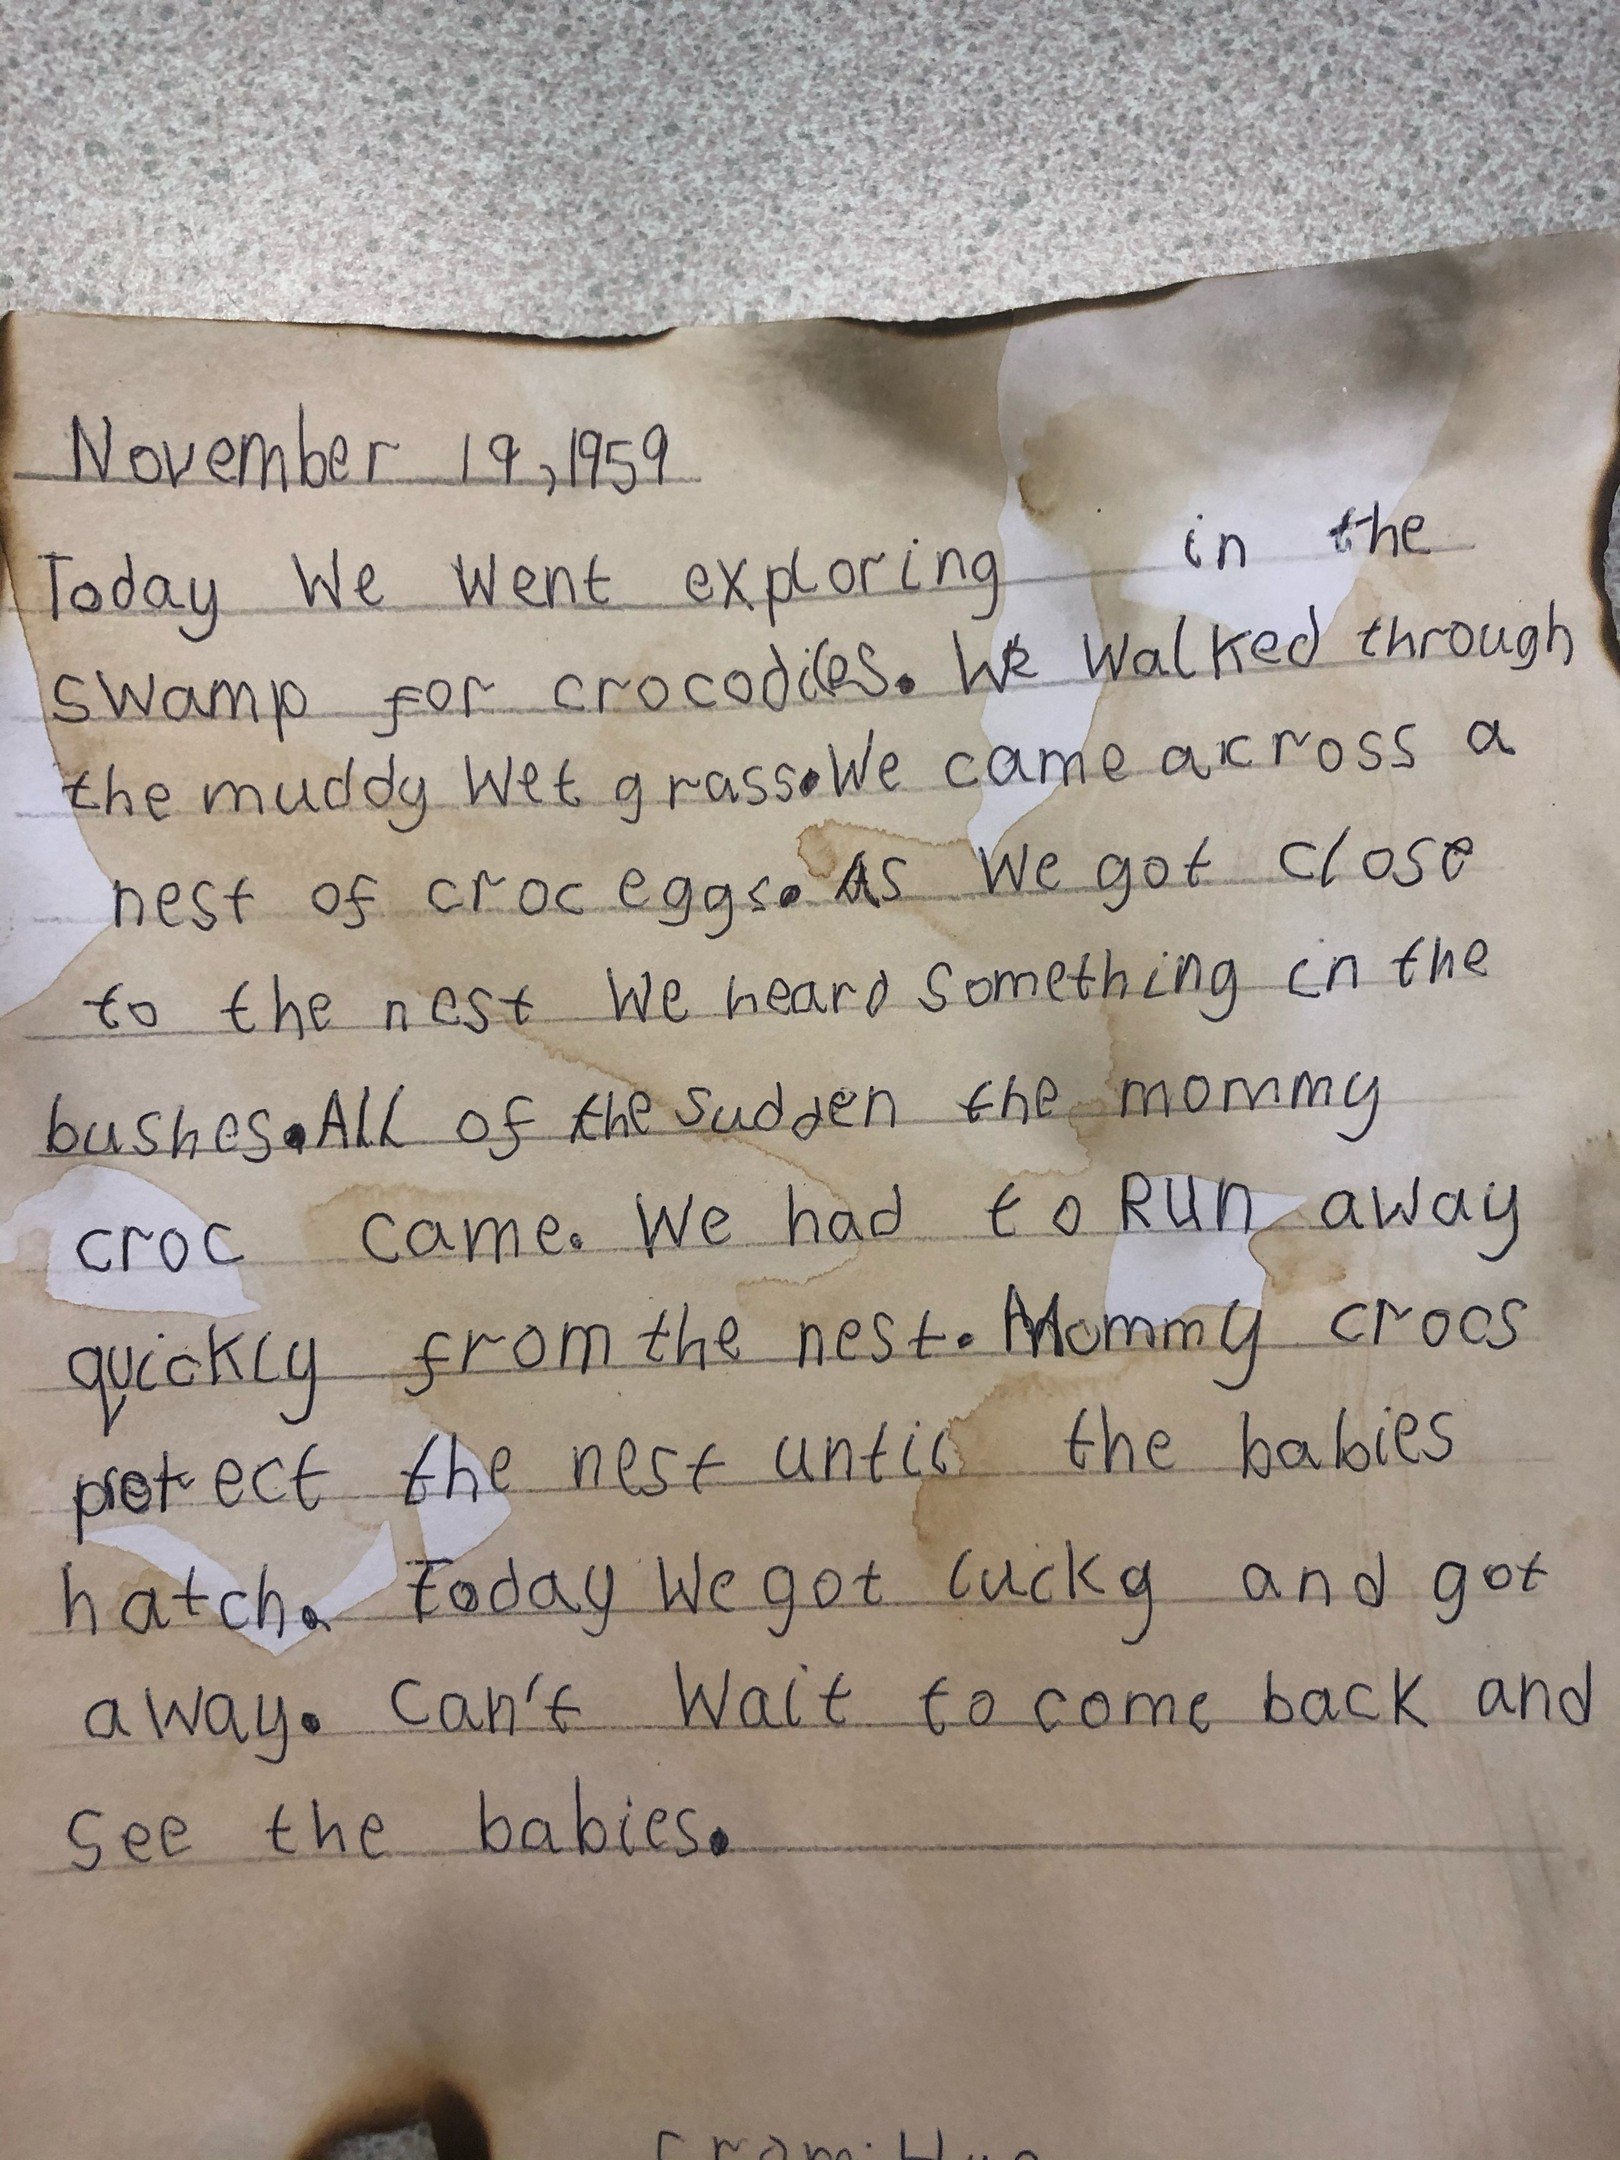 November 19, 1959
Today We Went exploring in the
swamp for crocodiles. We Walked through
the muddy Wet grass. We came across a
nest of croc eggs. As We got close
to the nest We heard something in the
bushes. All of the sudden the mommy
croc came. We had to RUN away
quickly from the nest. Mommy crocs
protect the nest until the babies
hatch. Today We got lucky and got
away. Can't Wait to come back and
See the babies.
From: